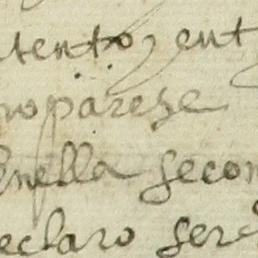 tento, ent
no parese
en ella secon
declaro ser